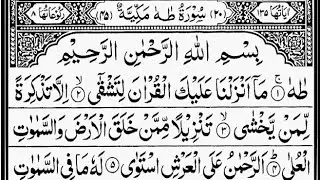 اٰیَاتُهَا ۱۳۵ (۲۰) سُوْرَةُ طٰهٰ مَكِّیَّةٌ (۴۵) رُكُوْعَاتُهَا ۸
بِسْمِ اللهِ الرَّحْمٰنِ الرَّحِیْمِ
طٰهٰ ۚ﴿۱﴾ مَاۤ اَنْزَلْنَا عَلَیْكَ الْقُرْاٰنَ لِتَشْقٰۤى ۙ﴿۲﴾ اِلَّا تَذْكِرَةً
لِّمَنْ یَّخْشٰى ۙ﴿۳﴾ تَنْزِیْلًا مِّمَّنْ خَلَقَ الْاَرْضَ وَ السَّمٰوٰتِ
الْعُلٰى ؕ﴿۴﴾ اَلرَّحْمٰنُ عَلَى الْعَرْشِ اسْتَوٰى ﴿۵﴾ لَهٗ مَا فِی السَّمٰوٰتِ